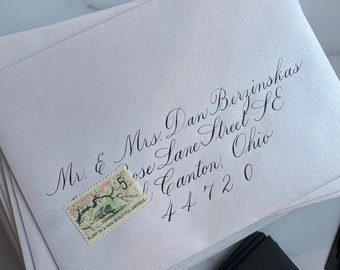 Mr. & Mrs. Dan Berzinskas
Rose Lane Street SE
Canton, Ohio
44720
5